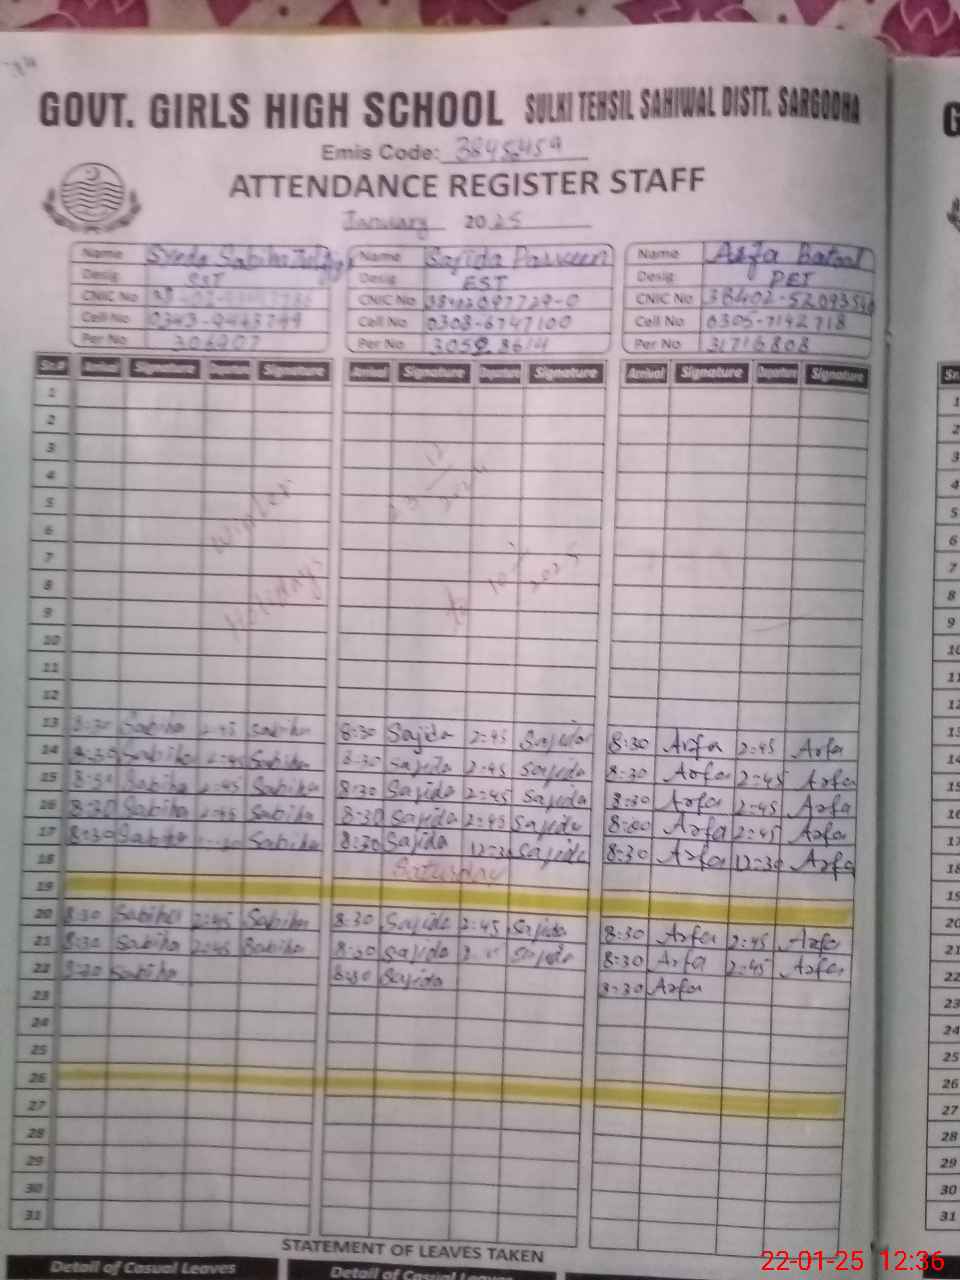 GOVT. GIRLS HIGH SCHOOL SULKI TEHSIL SAHIWAL DISTT. SARGODHA
Emis Code: 3845459
ATTENDANCE REGISTER STAFF
January 2025
Name Syeda Sabiha Name Sajida Parveen Name Arfa Batool
Desig EST Desig EST Desig PET
CNIC No CNIC No CNIC No
Cell No Cell No 0308-6747100 Cell No 0305-7142718
Per No Per No Per No 31716808
Sr.# Arrival Signature Departure Signature Arrival Signature Departure Signature Arrival Signature Departure Signature
1
2
3
4
5
6
7
8
9
10
11
12
Winter Holidays
to
2025
13 8:30 Sabiha 2:45 Sabiha 8:30 Sajida 2:45 Sajida 8:30 Arfa 2:45 Arfa
14 8:30 Sabiha 2:45 Sabiha 8:30 Sajida 2:45 Sajida 8:30 Arfa 2:45 Arfa
15 8:30 Sabiha 2:45 Sabiha 8:30 Sajida 2:45 Sajida 8:30 Arfa 2:45 Arfa
16 8:30 Sabiha 2:45 Sabiha 8:30 Sajida 2:45 Sajida Arfa 2:45 Arfa
17 8:30 Sabiha Sabiha 8:30 Sajida 12:30 Sajida 8:30 Arfa 12:30 Arfa
18 Saturday
19
20 8:30 Sabiha 2:45 Sabiha 8:30 Sajida 2:45 Sajida 8:30 Arfa 2:45 Arfa
21 8:30 Sabiha 2:45 Sabiha 8:30 Sajida Sajida 8:30 Arfa 2:45 Arfa
22 8:30 Sabiha 8:30 Sajida 8:30 Arfa
23
24
25
26
27
28
29
30
31
STATEMENT OF LEAVES TAKEN
Detail of Casual Leaves Detail of Casual Leaves
G
Sr.
1
2
3
4
5
6
7
8
9
10
11
12
13
14
15
16
17
18
19
20
21
22
23
24
25
26
27
28
29
30
31
22-01-25 12:36